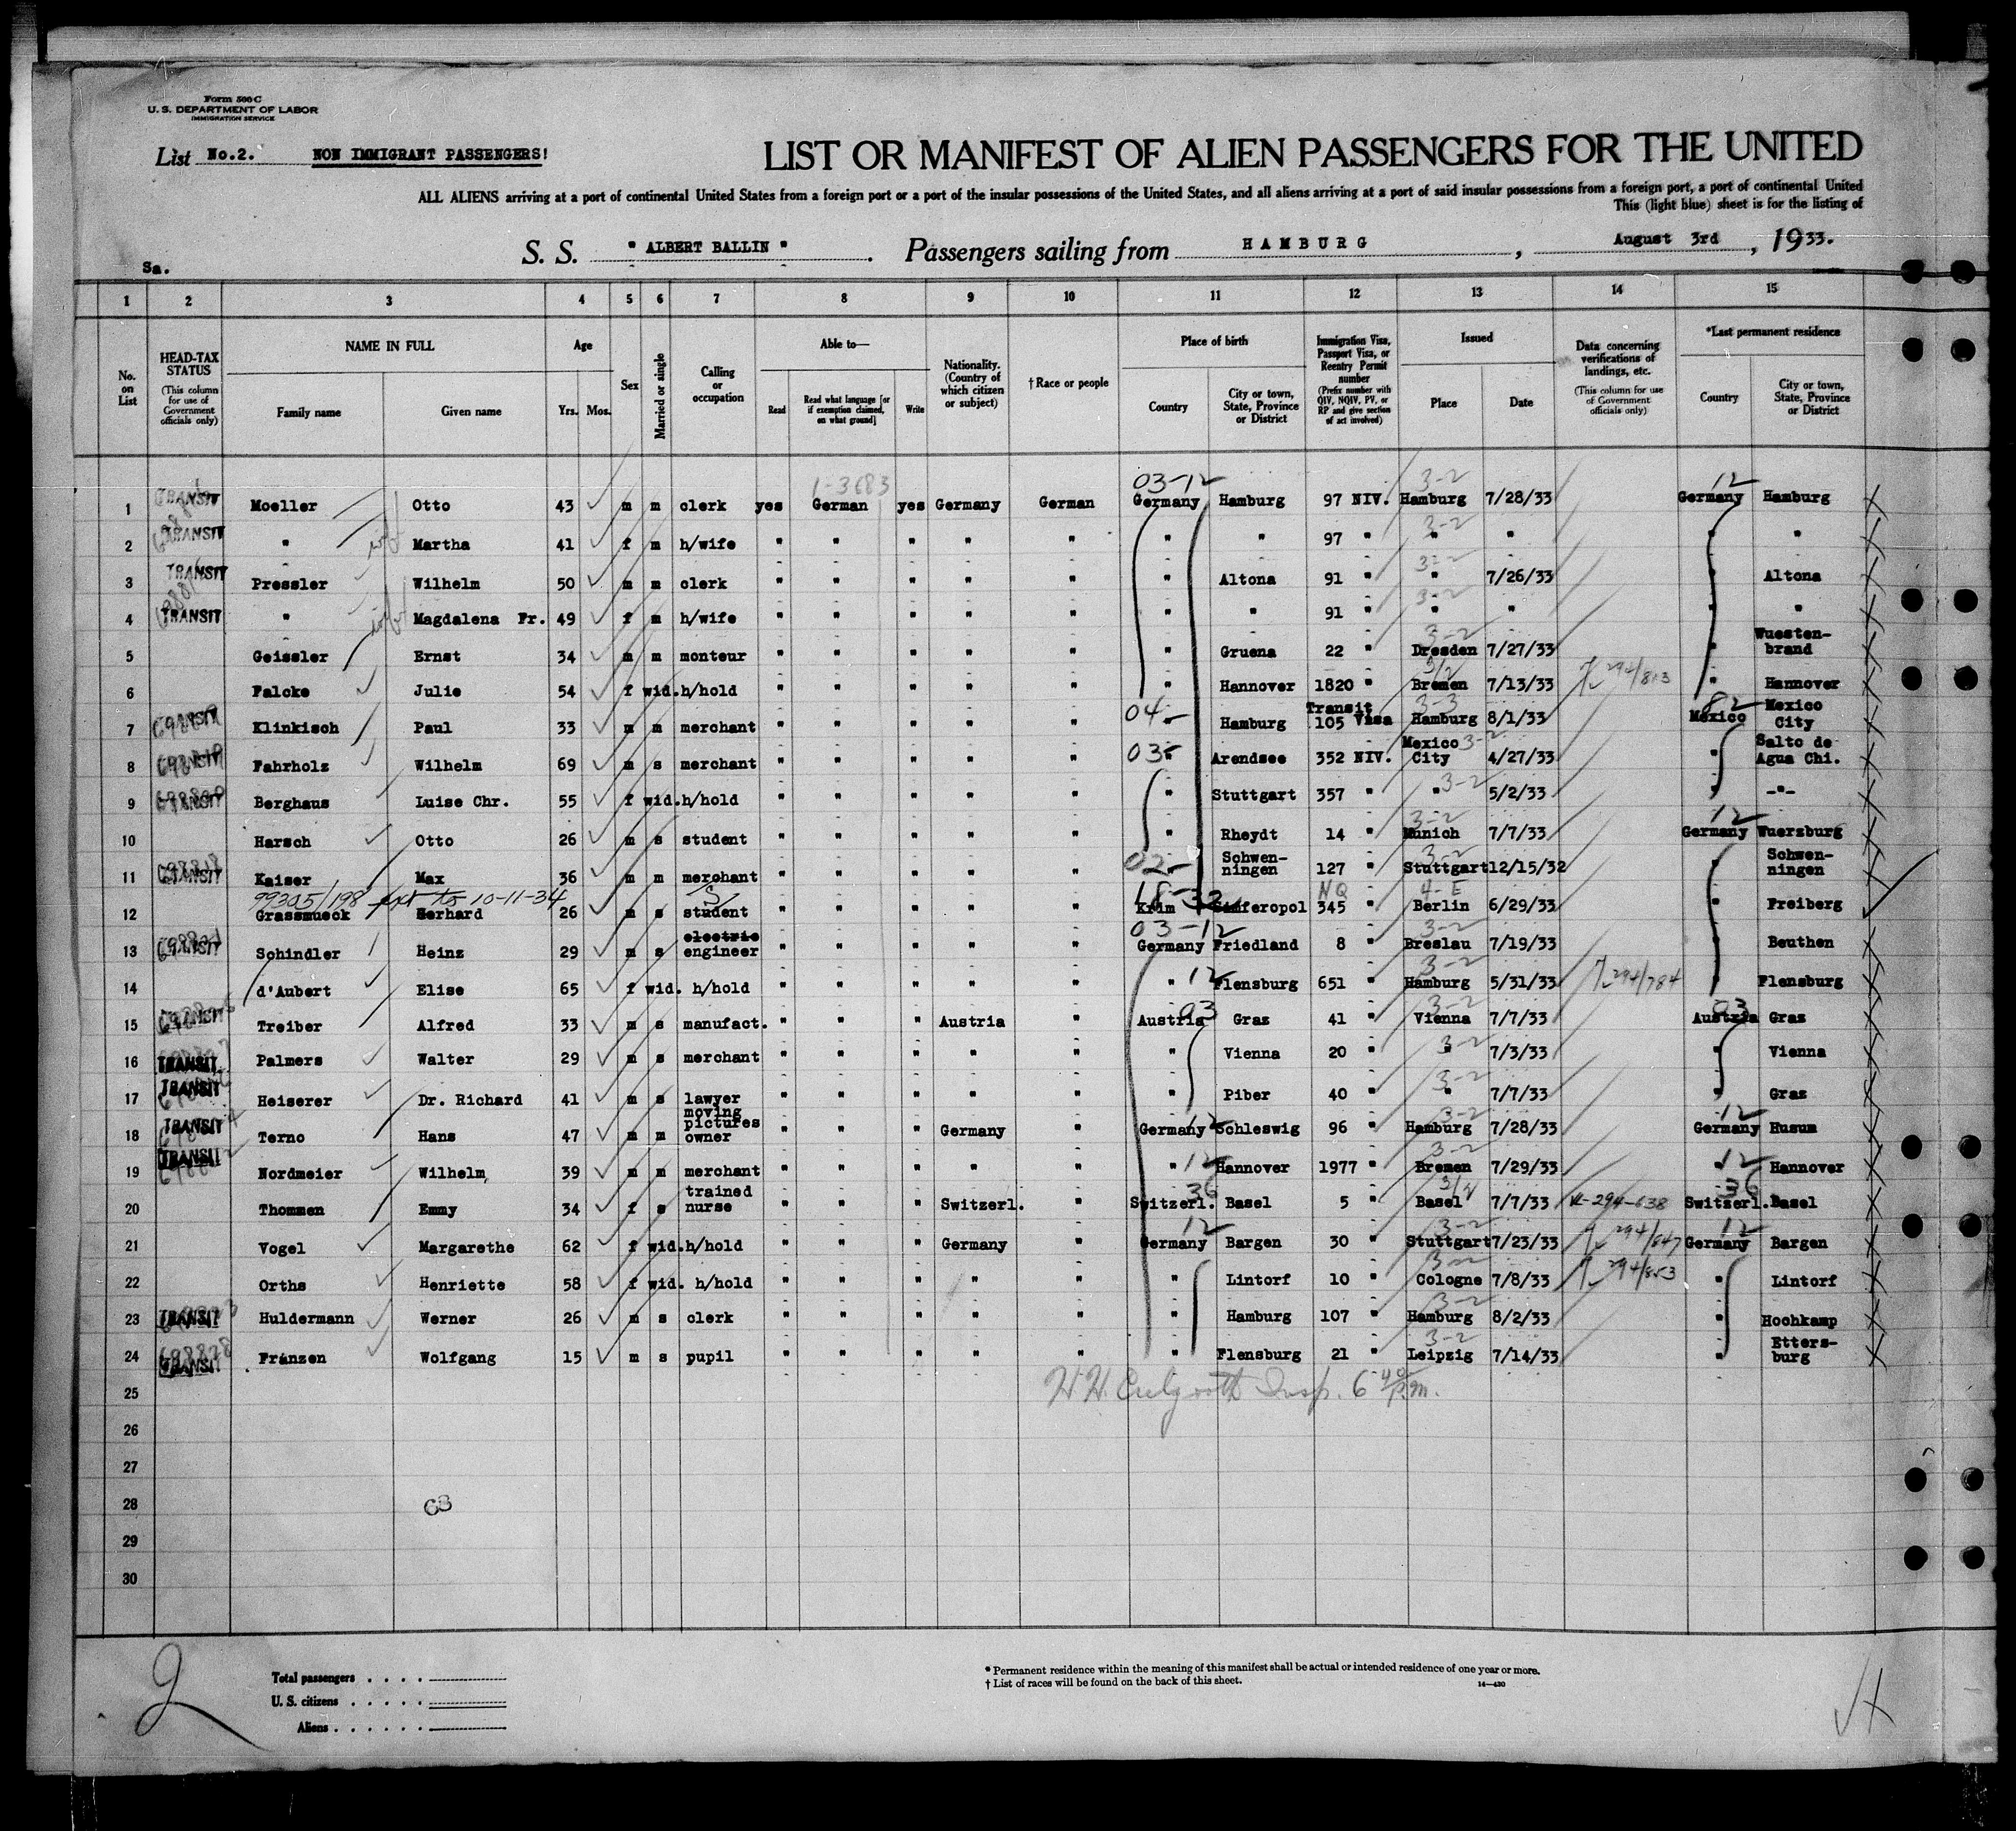 Form 500 C
U. S. DEPARTMENT OF LABOR
IMMIGRATION SERVICE
List No.2. NON IMMIGRANT PASSENGERS!
LIST OR MANIFEST OF ALIEN PASSENGERS FOR THE UNITED
ALL ALIENS arriving at a port of continental United States from a foreign port or a port of the insular possessions of the United States, and all aliens arriving at a port of said insular possessions from a foreign port, a port of continental United
This (light blue) sheet is for the listing of
S. S. " ALBERT BALLIN ". Passengers sailing from HAMBURG, August 3rd, 1933.
Sa.
1 2 3 4 5 6 7 8 9 10 11 12 13 14 15
No. on List
HEAD-TAX STATUS (This column for use of Government officials only)
NAME IN FULL Family name Given name
Age Yrs. Mos.
Sex
Married or single
Calling or occupation
Able to— Read Read what language [or if exemption claimed, on what ground] Write
Nationality. (Country of which citizen or subject)
† Race or people
Place of birth Country City or town, State, Province or District
Immigration Visa, Passport Visa, or Reentry Permit number (Prefix number with QIV, NQIV, PV, or RP and give section of act involved)
Issued Place Date
Data concerning verifications of landings, etc. (This column for use of Government officials only)
*Last permanent residence Country City or town, State, Province or District
1-3683 03-12 3-2 12
1 TRANSIT Moeller Otto 43 m m clerk yes German yes Germany German Germany Hamburg 97 NIV. Hamburg 7/28/33 Germany Hamburg
2 TRANSIT " wife Martha 41 f m h/wife " " " " " " " 97 " 3-2 " " " "
3 TRANSIT Pressler Wilhelm 50 m m clerk " " " " " " Altona 91 " 3-2 " 7/26/33 " Altona
4 TRANSIT " wife Magdalena Fr. 49 f m h/wife " " " " " " " 91 " 3-2 " " " "
5 Geissler Ernst 34 m m monteur " " " " " " Gruena 22 " 3-2 Dresden 7/27/33 " Wuesten-brand
6 Falcke Julie 54 f wid. h/hold " " " " " " Hannover 1820 " 3/2 Bremen 7/13/33 294/813 " Hannover
7 TRANSIT Klinkisch Paul 33 m m merchant " " " " " 04 Hamburg Transit 105 Visa 3-3 Hamburg 8/1/33 82 Mexico Mexico City
8 TRANSIT Fahrholz Wilhelm 69 m s merchant " " " " " 03 " Arendsee 352 NIV. Mexico City 3-2 4/27/33 " Salto de Agua Chi.
9 TRANSIT Berghaus Luise Chr. 55 f wid. h/hold " " " " " " Stuttgart 357 " " 3-2 5/2/33 " -"-
10 Harsch Otto 26 m s student " " " " " " Rheydt 14 " 3-2 Munich 7/7/33 12 Germany Wuerzburg
11 698818 TRANSIT Kaiser Max 36 m m merchant " " " " " 02 Schwen-ningen 127 " 3-2 Stuttgart 12/15/32 " Schwen-ningen
99305/198 ext to 10-11-34
12 Grassmueck Gerhard 26 m s student " " " " " 18-32 Krim Simferopol NQ 345 " 4-E Berlin 6/29/33 " Freiberg
13 TRANSIT Schindler Heinz 29 m s electric engineer " " " " " 03-12 Germany Friedland 8 " 3-2 Breslau 7/19/33 " Beuthen
14 d'Aubert Elise 65 f wid. h/hold " " " " " " 12 Flensburg 651 " 3-2 Hamburg 5/31/33 294/784 " Flensburg
15 TRANSIT Treiber Alfred 33 m s manufact. " " " Austria " Austria 03 Graz 41 " 3-2 Vienna 7/7/33 03 Austria Graz
16 TRANSIT Palmers Walter 29 m s merchant " " " " " " Vienna 20 " 3-2 " 7/3/33 " Vienna
17 TRANSIT Heiserer Dr. Richard 41 m s lawyer " " " " " " Piber 40 " 3-2 " 7/7/33 " Graz
18 TRANSIT Terno Hans 47 m m moving pictures owner " " " Germany " Germany 12 Schleswig 96 " 3-2 Hamburg 7/28/33 12 Germany Husum
19 TRANSIT Nordmeier Wilhelm 39 m m merchant " " " " " " 12 Hannover 1977 " 3-2 Bremen 7/29/33 " 12 Hannover
20 Thommen Emmy 34 f s trained nurse " " " Switzerl. " 36 Switzerl. Basel 5 " Basel 7/7/33 294-638 36 Switzerl. Basel
21 Vogel Margarethe 62 f wid. h/hold " " " Germany " 12 Germany Bargen 30 " 3-2 Stuttgart 7/23/33 294/847 12 Germany Bargen
22 Orths Henriette 58 f wid. h/hold " " " " " " Lintorf 10 " 3-2 Cologne 7/8/33 294/853 " Lintorf
23 TRANSIT Huldermann Werner 26 m s clerk " " " " " " Hamburg 107 " 3-2 Hamburg 8/2/33 " Hochkamp
24 698828 TRANSIT Franzen Wolfgang 15 m s pupil " " " " " " Flensburg 21 " 3-2 Leipzig 7/14/33 " Etters-burg
25
26
27
28
29
30
63
2
Total passengers . . . .
U. S. citizens . . . . .
Aliens . . . . . .
* Permanent residence within the meaning of this manifest shall be actual or intended residence of one year or more.
† List of races will be found on the back of this sheet. 14—430